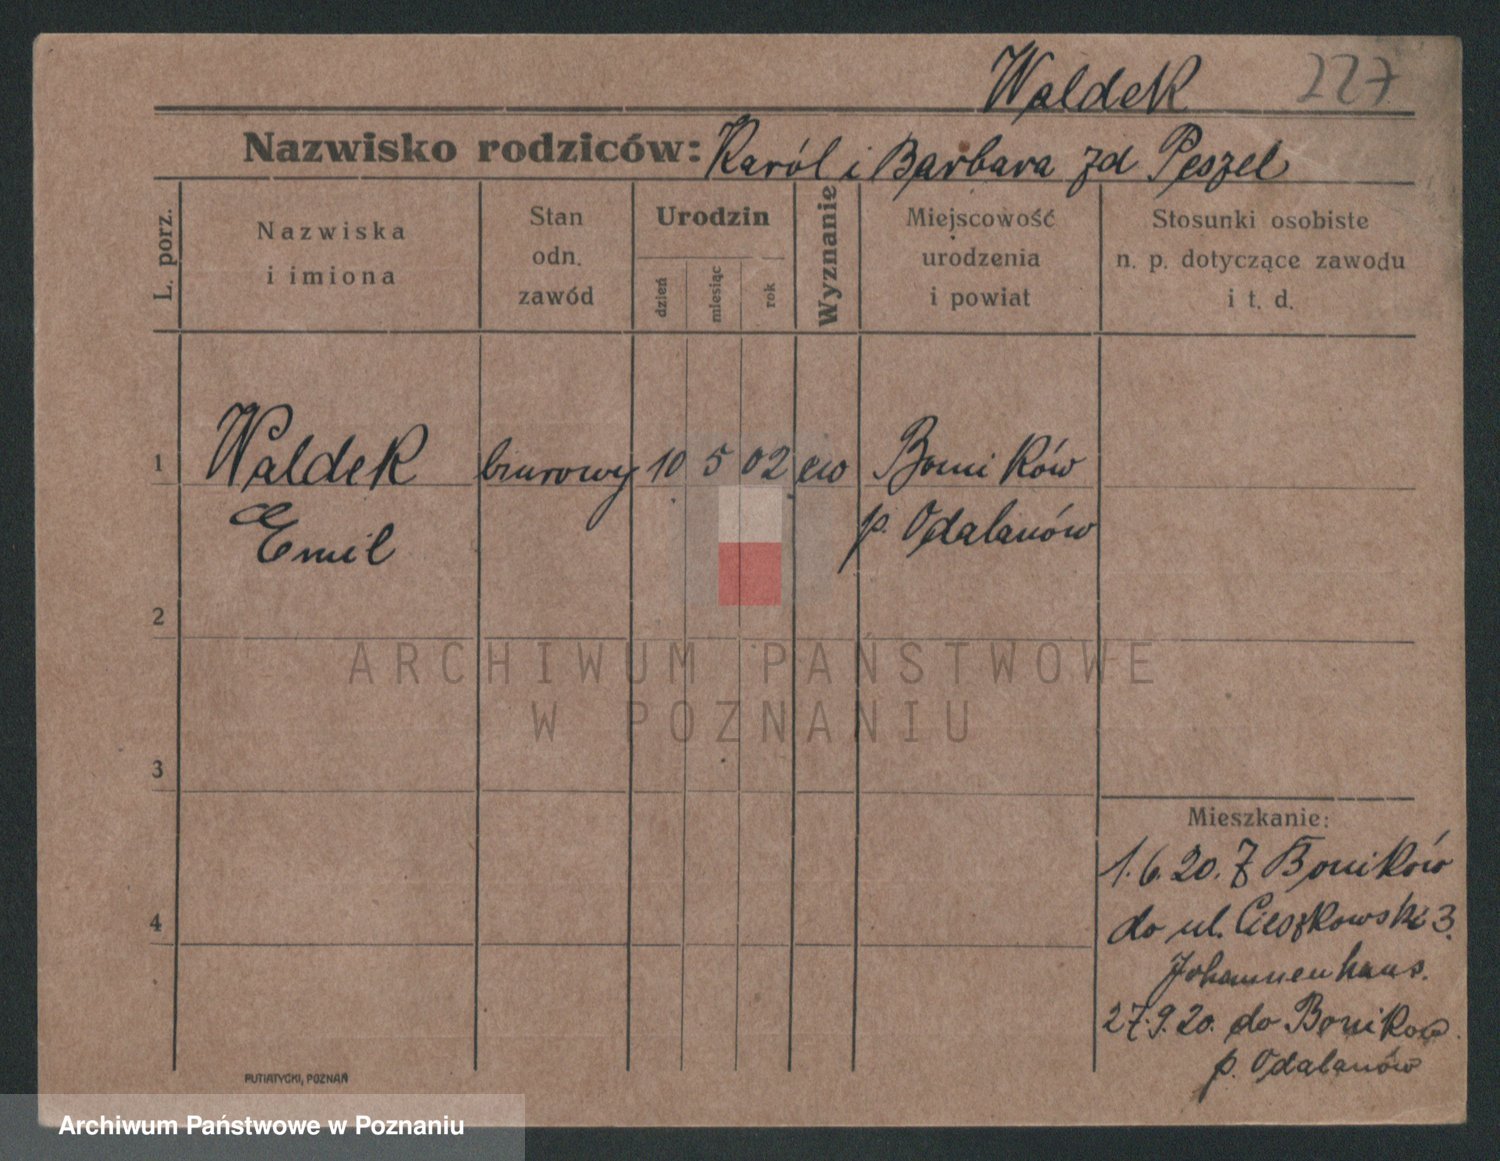 Waldek 227
Nazwisko rodziców: Karól i Barbara zd Peszel
L. porz.
Nazwiska
i imiona
Stan
odn.
zawód
Urodzin
dzień
miesiąc
rok
Wyznanie
Miejscowość
urodzenia
i powiat
Stosunki osobiste
n. p. dotyczące zawodu
i t. d.
1 Waldek biurowy 10 5 02 ew Boników
Emil p. Odalanów
2
ARCHIWUM PAŃSTWOWE
W POZNANIU
3
Mieszkanie:
1.6.20. Z Boników
do ul. Cieszkowski 3.
4
Johannenhaus.
27.9.20. do Boników
p. Odalanów
PUTIATYCKI, POZNAŃ
Archiwum Państwowe w Poznaniu